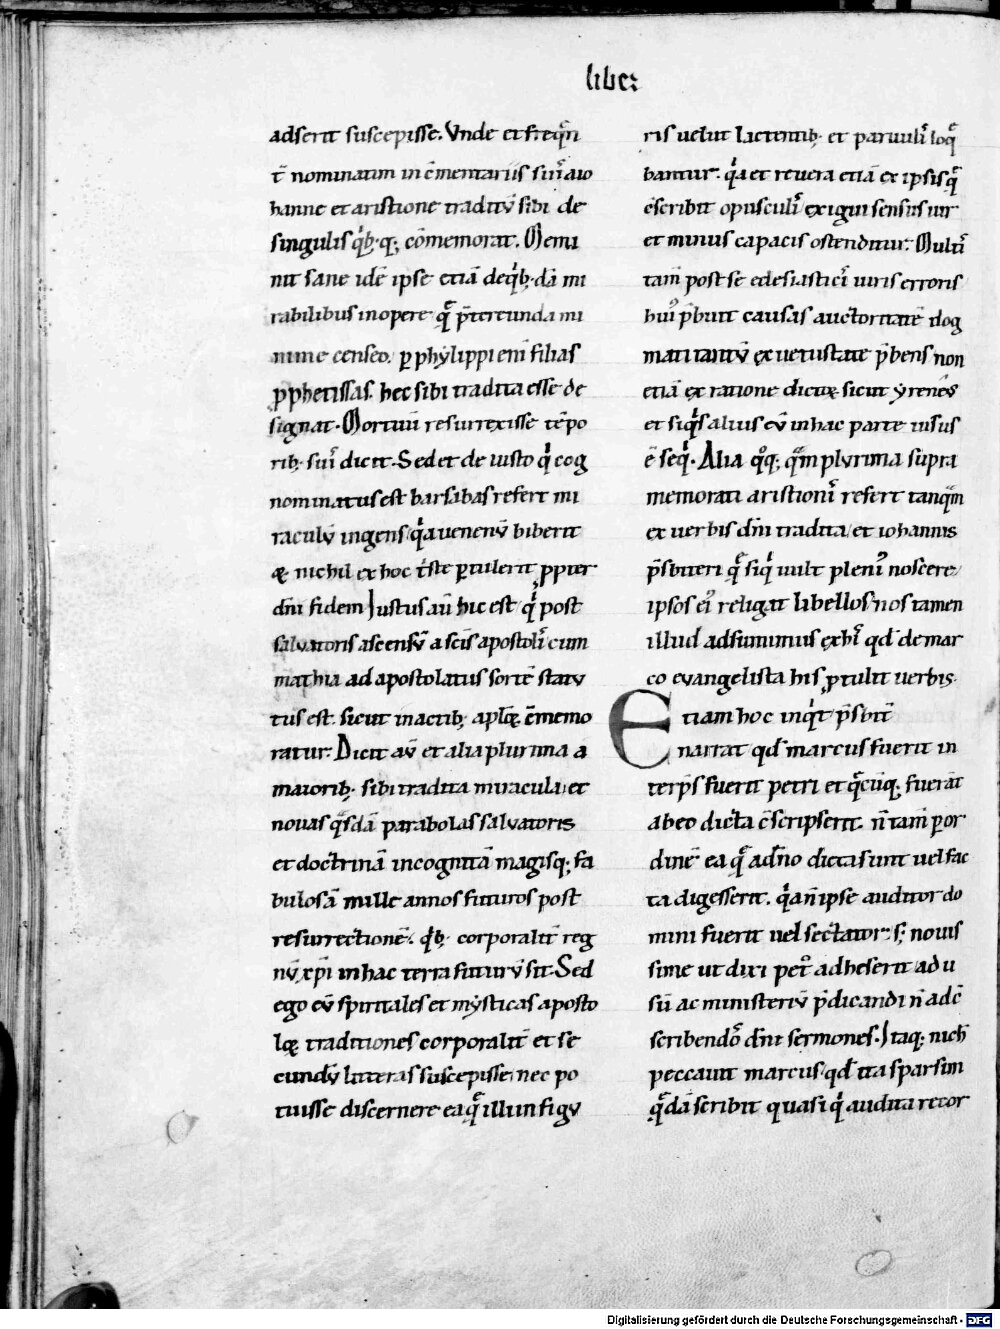 liber
adserit suscepisse. Vnde et freqn̄
t̄ nominatim in c̄mentariis sui aio
hanne et aristione traditū sibi de
singulis qͥbꝫ qꝫ cōmemorat. Memi
nit sane idē ipse etiā deqͥbꝫ dā mi
rabilibus in opere qͣ p̄tereunda mi
nime censeo. ꝑ phylippi eni filias
ꝓphetissas. hec sibi tradita esse de
signat. Mortuū resurrexisse tēpo
ribꝫ sui dicit. Sed et de iusto qͥ cog
nominatus est barsabas refert mi
raculū ingens qͥa uenenū biberit
& nichil ex hoc tͥste ꝑtulerit ꝓpter
dn̄i fidem Justus aū hic est qͥ post
saluatoris ascensū a scīs apostoli cum
mathia ad apostolatus sortē statu
tus est. sicut in actibꝫ aplꝝ c̄memo
ratur. Dicit aū et alia plurima a
maioribꝫ sibi tradita miracula et
nouas qͣsdā parabolas saluatoris
et doctrinā incognitā magisqꝫ fa
bulosā mille annos futuros post
resurrectionē. qͥbꝫ corporalit̄ reg
nū xp̄i in hac terra futurū sit. Sed
ego eū spiritales et mysticas aposto
loꝝ traditiones corporalit̄ et se
cundū litteras suscepisse nec po
tuisse discernere ea qͣ illi in figu
ris uelut lactentibꝫ et paruuli loqͣ
bantur. qͥa et reuera etiā ex ipsis qͣ
c̄scribit opusculi exigui sensus uir
et minus capacis ostenditur. Multi
tam̄ post se eclesiastici uiris erroris
huiꝰ p̄buit causas auctoritatē dog
mati tantū ex uetustate p̄bens non
etiā ex ratione dictoꝝ sicut yreneꝰ
et siqͥs alius eū in hac parte uisus
ē seqͥ. Alia qͦqꝫ qͣm plurima supra
memorati aristioni refert tanqͣm
ex uerbis dn̄i tradita et iohannis
p̄sbiteri qͣ siqͥ uult pleniꝰ noscere
ipsos eiꝰ religat libellos nos tamen
illud adsumimus exhi qd̄ de mar
co euangelista his ꝓtulit uerbis.
Etiam hoc inqͥt p̄sbit̄
narrat qd̄ marcus fuerit in
terp̄s fuerit petri et qͣcūqꝫ fuerāt
abeo dicta c̄scripserit. n̄ tam̄ ꝑor
dinē ea qͣ adn̄o dicta sunt uel fac
ta digesserit. qͥa n̄ ipse auditor do
mini fuerit uel sectator. sꝫ nouis
sime ut dixi petͦ adheserit ad u
sū ac ministeriū p̄dicandi n̄ adc̄
scribendoͣ dn̄i sermones. Itaqꝫ nich̄
peccauit marcus qd̄ ita sparsim
qͣdā scribit quasi qͥ audita recor
Digitalisierung gefördert durch die Deutsche Forschungsgemeinschaft - DFG